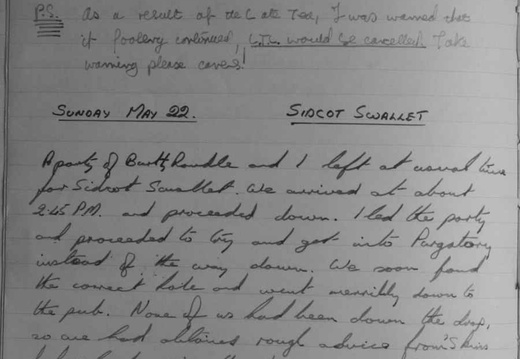 P.S. As a result of the Late Tea, I was warned that
if foolery continued, L.T. would be cancelled. Take
warning please cavers!
SUNDAY MAY 22. SIDCOT SWALLET
A party of Barth, Randle and I left at usual time
for Sidcot Swallet. We arrived at about
2.45 P.M. and proceeded down. I led the party
and proceeded to try and get into Purgatory
instead of the way down. We soon found
the correct hole and went merrily down to
the pub. None of us had been down the drop,
so we had obtained rough advice from